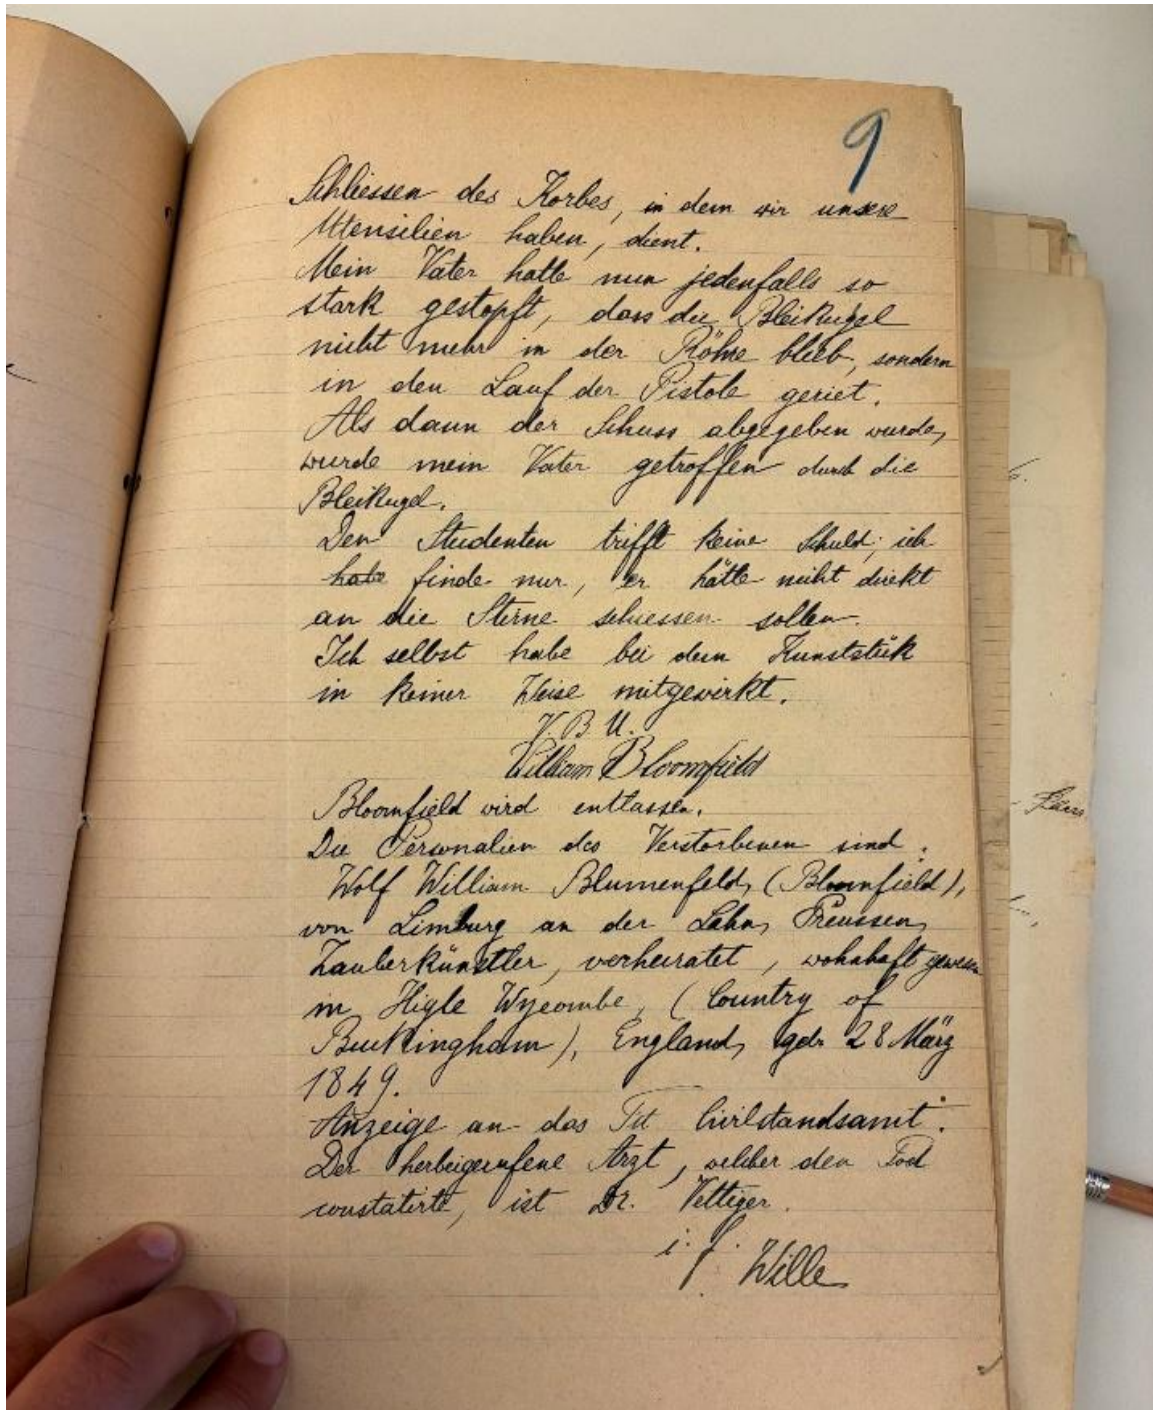 9
Schliessen des Korbes, in dem wir unsere
Utensilien haben, dient.
Mein Vater hatte nun jedenfalls so
stark gestopft, dass die Bleikugel
nicht mehr in der Röhre blieb, sondern
in den Lauf der Pistole geriet.
Als dann der Schuss abgegeben wurde,
wurde mein Vater getroffen durch die
Bleikugel.
Den Studenten trifft keine Schuld; ich
habe finde nur, er hätte nicht direkt
an die Stirne schiessen sollen.
Ich selbst habe bei dem Kunststück
in keiner Weise mitgewirkt.
V. B. U.
William Bloomfield
Bloomfield wird entlassen.
Die Personalien des Verstorbenen sind:
Wolf William Blumenfeld, (Bloomfield),
von Limburg an der Lahn, Preussen,
Zauberkünstler, verheiratet, wohnhaft gewesen
in Higle Wycombe, (Country of
Buckingham), England, geb. 28 März
1849.
Anzeige an das Civilstandsamt.
Der herbeigerufene Arzt, welcher den Tod
constatirte, ist Dr. Vettiger.
i. f.
Wille